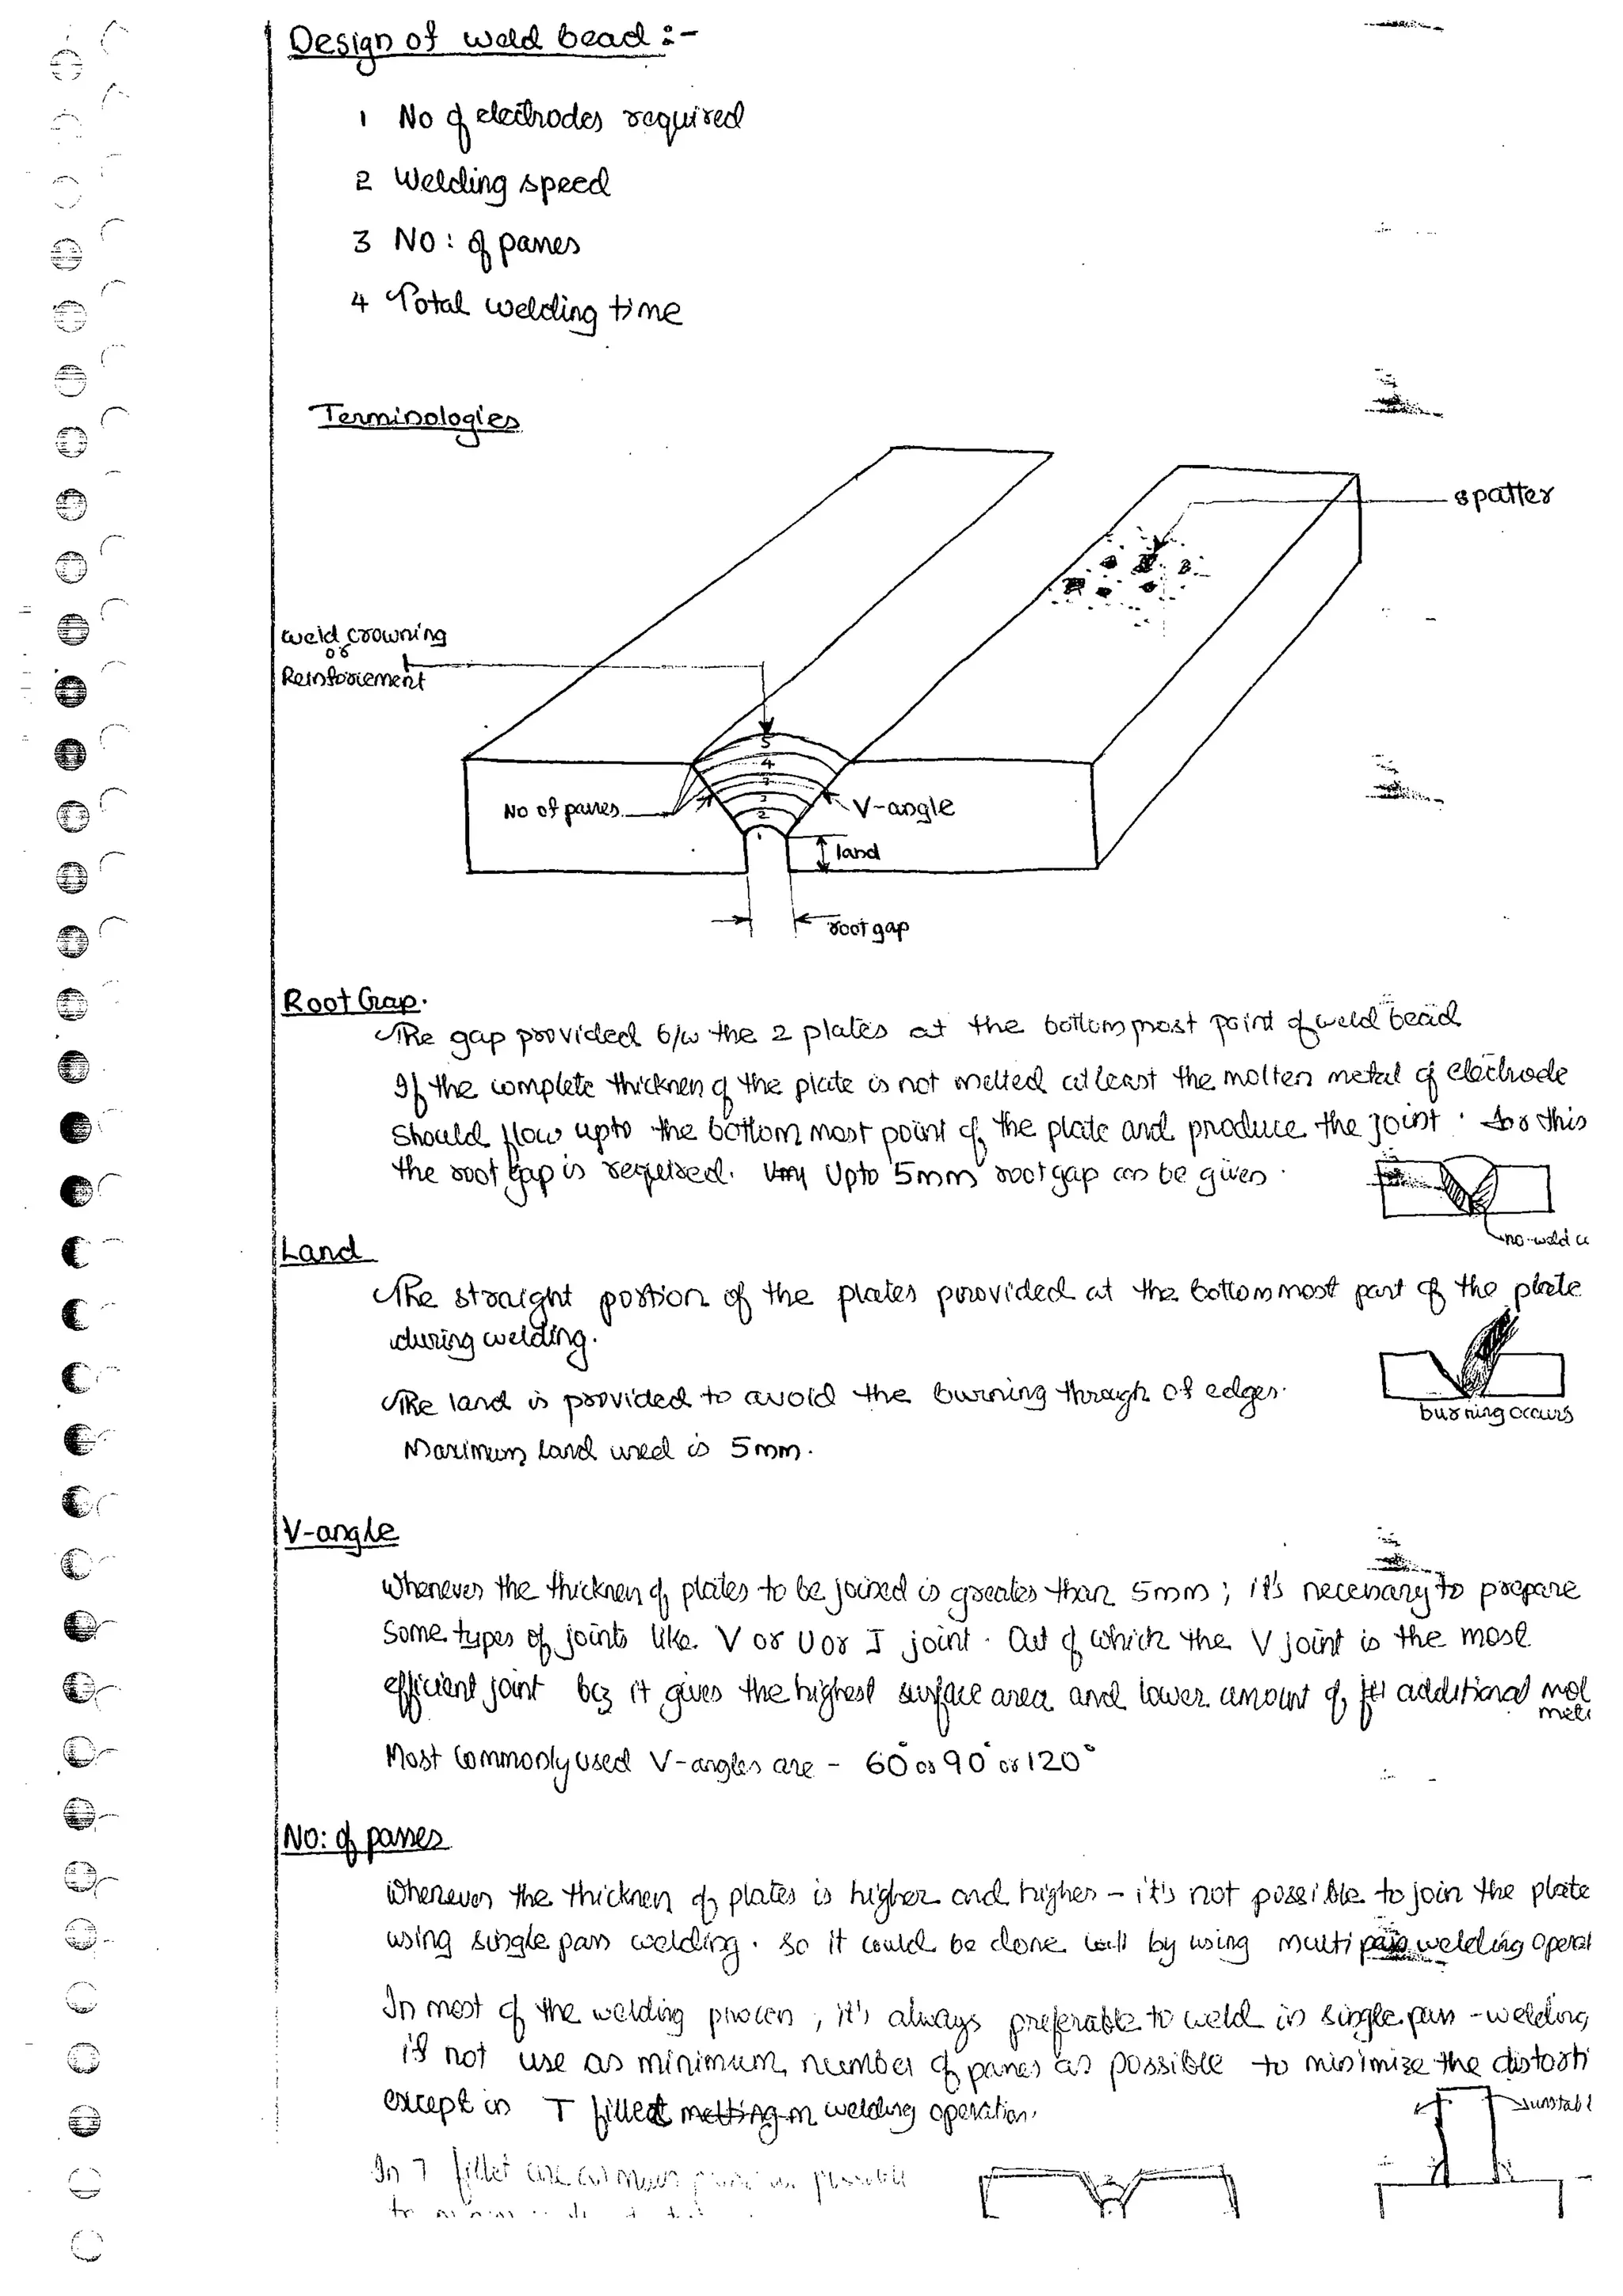 Design of weld bead :-
1 No of electrodes required
2 Welding speed
3 No: of passes
4 Total welding time
Terminologies
spatter
weld crowning
or
Reinforcement
5
4
3
2
1
No of passes
V-angle
land
root gap
Root Gap.
The gap provided b/w the 2 plates at the bottom most point of weld bead
If the complete thickness of the plate is not melted atleast the molten metal of electrode
should flow upto the bottom most point of the plate and produce the joint. for this
the root gap is required. Upto 5mm root gap can be given.
no-weld
Land
The straight portion of the plates provided at the bottommost part of the plate
during welding.
The land is provided to avoid the burning through of edges.
burning occurs
Maximum land used is 5mm.
V-angle
Whenever the thickness of plates to be joined is greater than 5mm; it's necessary to prepare
some types of joints like V or U or J joint. Out of which the V joint is the most
efficient joint bcz it gives the highest surface area and lower amount of additional
Most Commonly used V-angles are - 60° or 90° or 120°
No: of passes
Whenever the thickness of plates is higher and higher - it's not possible to join the plate
using single pass welding. So it could be done by using multi pass welding operat
In most of the welding process, it's always preferable to weld in single pass - welding,
if not use as minimum number of passes as possible to minimize the distorti
except in T fillet welding operation.
In T fillet